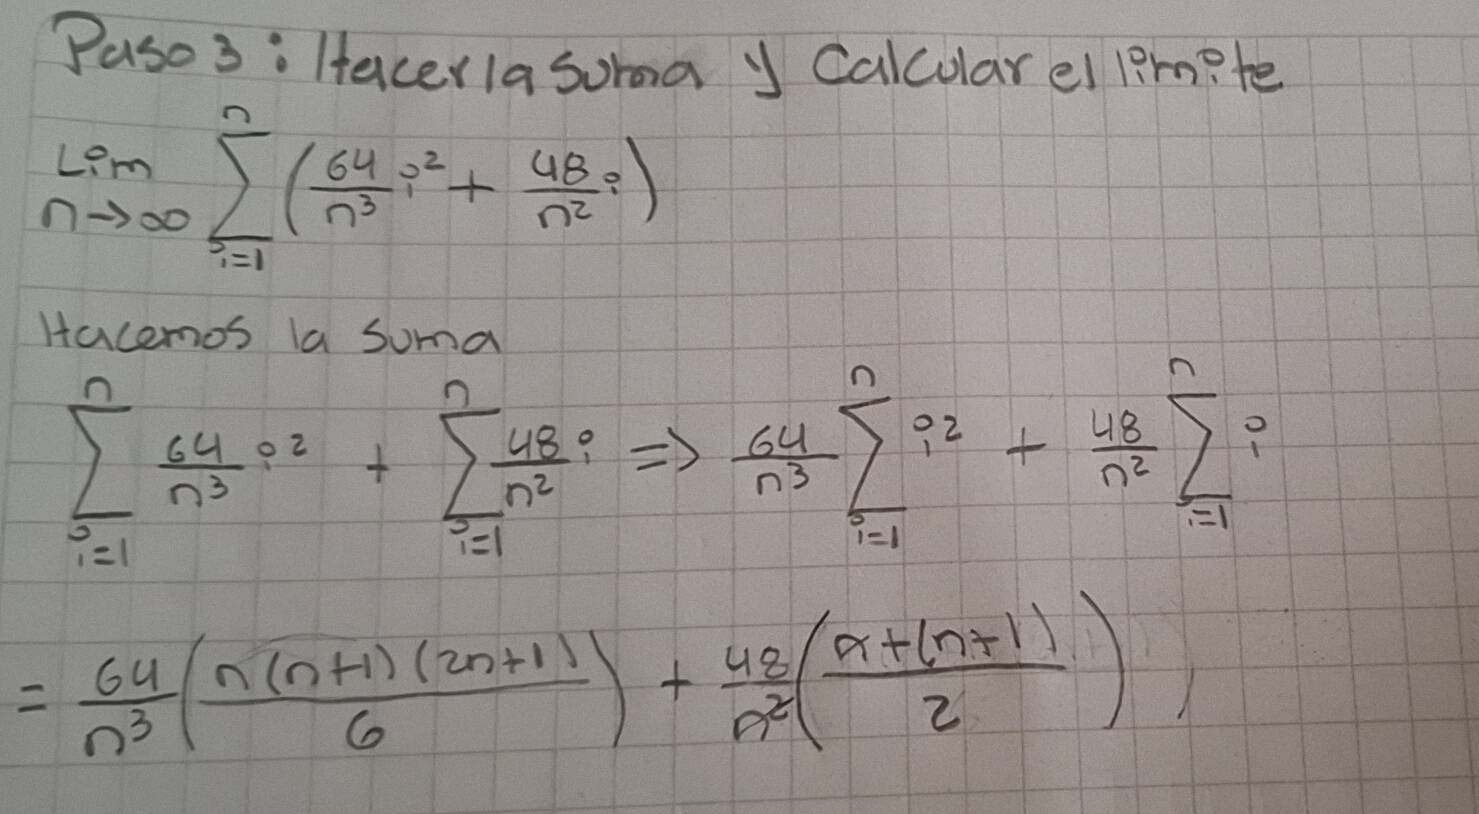 Paso 3: Hacer la Suma y Calcular el limite
Lim n→∞ ∑_{i=1}^{n} (64/n³ i² + 48/n² i)
Hacemos la suma
∑_{i=1}^{n} 64/n³ i² + ∑_{i=1}^{n} 48/n² i ⇒ 64/n³ ∑_{i=1}^{n} i² + 48/n² ∑_{i=1}^{n} i
= 64/n³ (n(n+1)(2n+1)/6) + 48/n² (n+(n+1)/2)